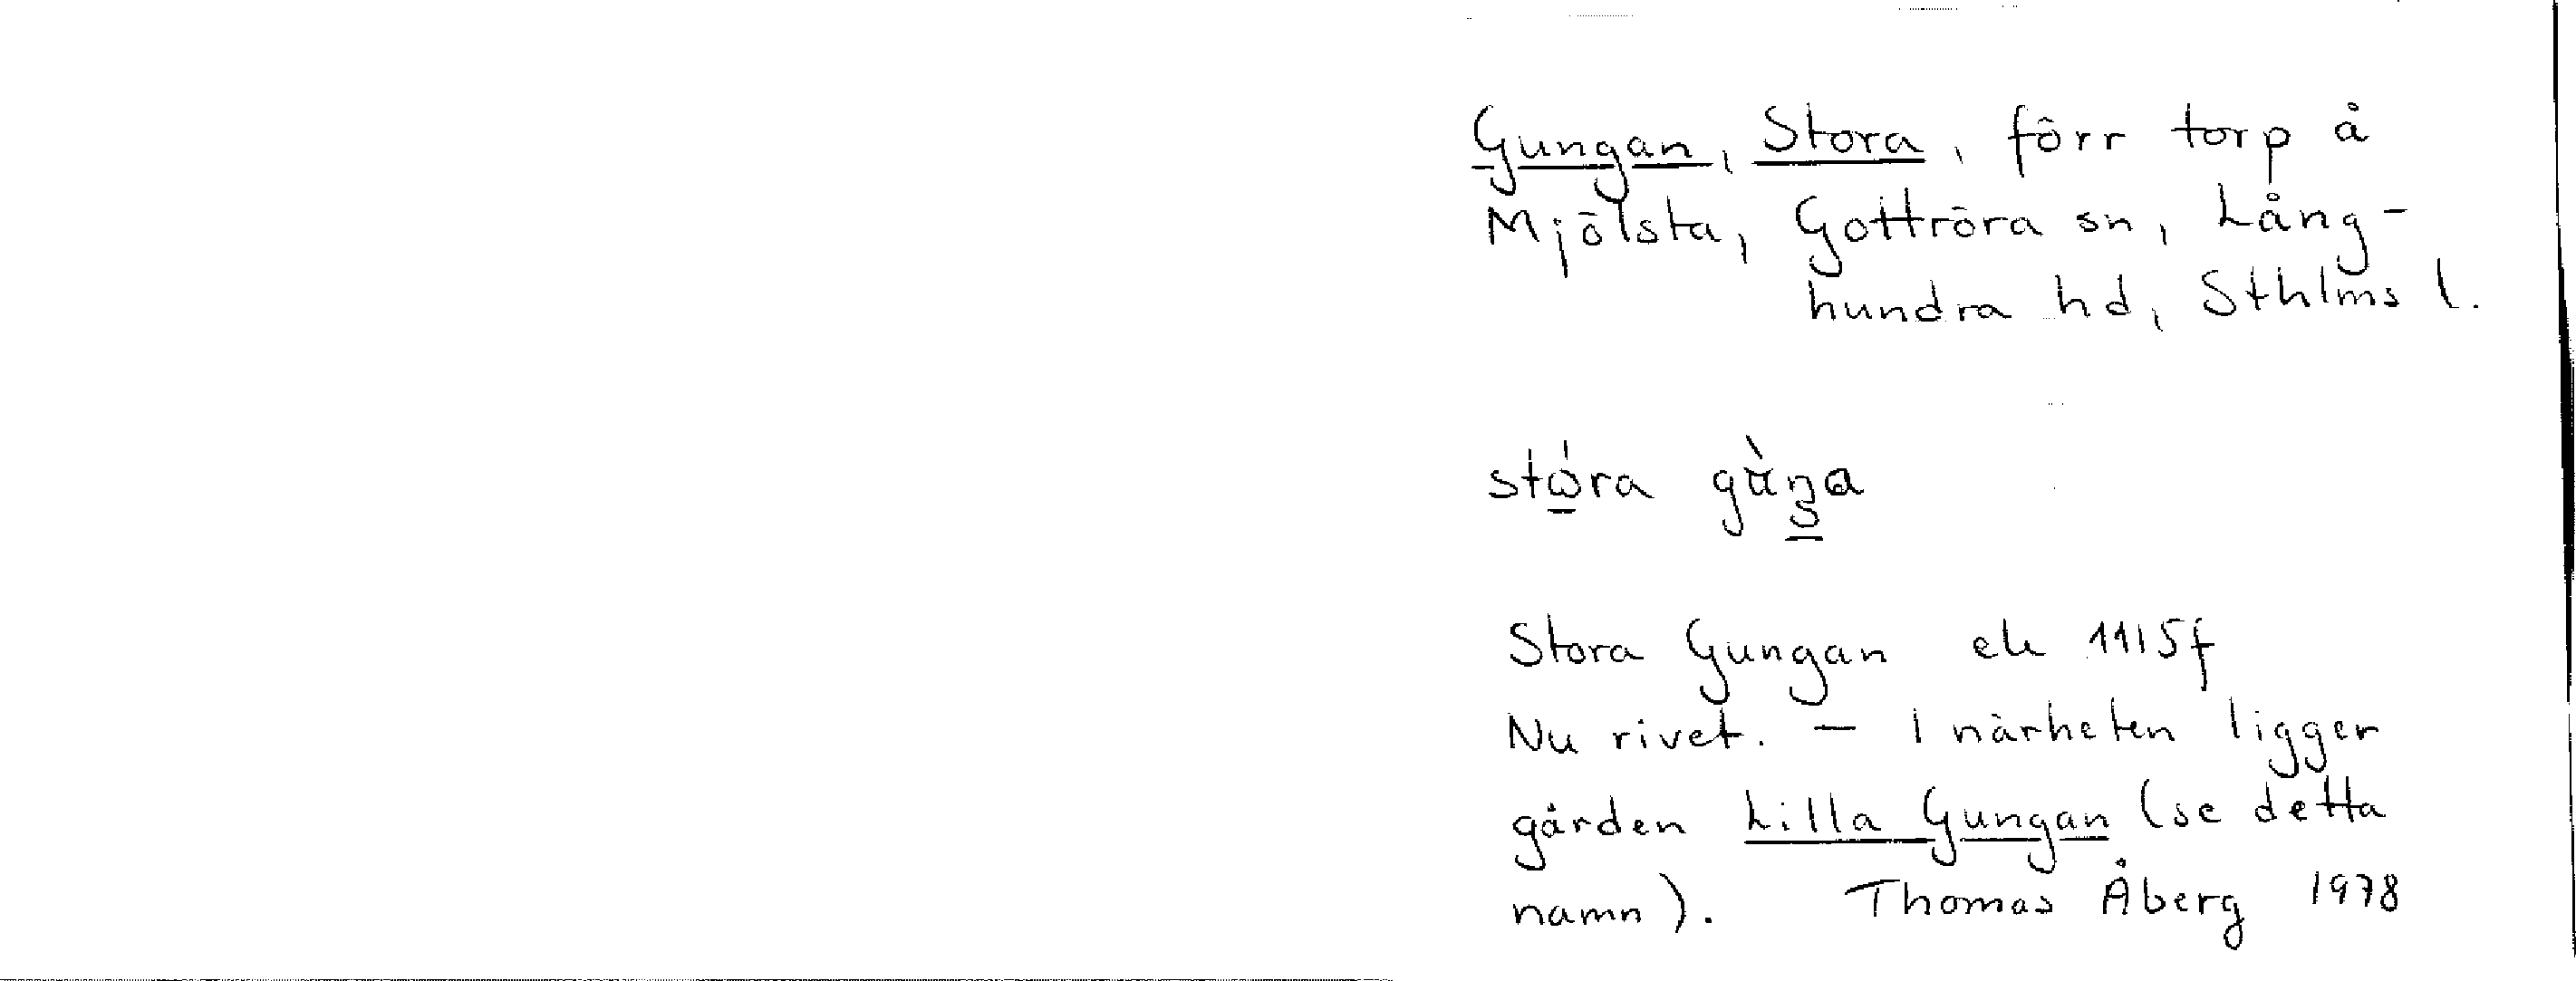 Gungan, Stora, förr torp å
Mjölsta, Gottröra sn, Lång-
hundra hd, Sthlms l.
stora
Stora Gungan ek 11I5f
Nu rivet. – I närheten ligger
gården Lilla Gungan (se detta
namn). Thomas Åberg 1978